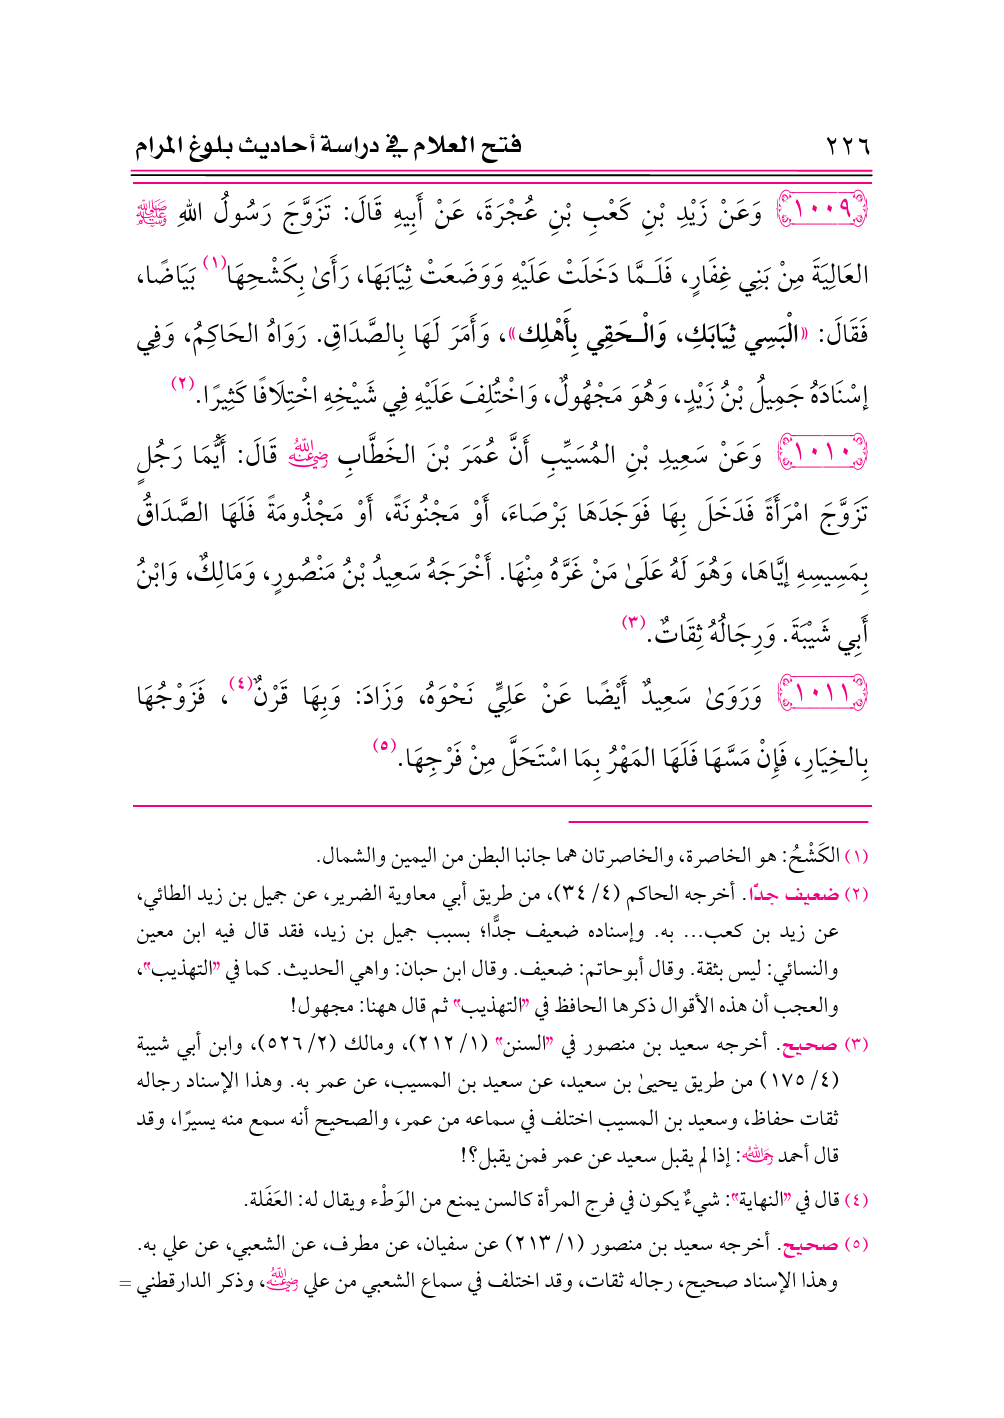 ٢٢٦ فتح العلام في دراسة أحاديث بلوغ المرام
١٠٠٩ وَعَنْ زَيْدِ بْنِ كَعْبِ بْنِ عُجْرَةَ، عَنْ أَبِيهِ قَالَ: تَزَوَّجَ رَسُولُ اللهِ ﷺ
العَالِيَةَ مِنْ بَنِي غِفَارٍ، فَلَـمَّا دَخَلَتْ عَلَيْهِ وَوَضَعَتْ ثِيَابَهَا، رَأَىٰ بِكَشْحِهَا(١) بَيَاضًا،
فَقَالَ: «الْبَسِي ثِيَابَكِ، وَالْـحَقِي بِأَهْلِك»، وَأَمَرَ لَهَا بِالصَّدَاقِ. رَوَاهُ الحَاكِمُ، وَفِي
إسْنَادَهُ جَمِيلُ بْنُ زَيْدٍ، وَهُوَ مَجْهُولٌ، وَاخْتُلِفَ عَلَيْهِ فِي شَيْخِهِ اخْتِلَافًا كَثِيرًا.(٢)
١٠١٠ وَعَنْ سَعِيدِ بْنِ المُسَيِّبِ أَنَّ عُمَرَ بْنَ الخَطَّابِ رضي الله عنه قَالَ: أَيُّمَا رَجُلٍ
تَزَوَّجَ امْرَأَةً فَدَخَلَ بِهَا فَوَجَدَهَا بَرْصَاءَ، أَوْ مَجْنُونَةً، أَوْ مَجْذُومَةً فَلَهَا الصَّدَاقُ
بِمَسِيسِهِ إيَّاهَا، وَهُوَ لَهُ عَلَىٰ مَنْ غَرَّهُ مِنْهَا. أَخْرَجَهُ سَعِيدُ بْنُ مَنْصُورٍ، وَمَالِكٌ، وَابْنُ
أَبِي شَيْبَةَ. وَرِجَالُهُ ثِقَاتٌ.(٣)
١٠١١ وَرَوَىٰ سَعِيدٌ أَيْضًا عَنْ عَلِيٍّ نَحْوَهُ، وَزَادَ: وَبِهَا قَرْنٌ(٤)، فَزَوْجُهَا
بِالخِيَارِ، فَإِنْ مَسَّهَا فَلَهَا المَهْرُ بِمَا اسْتَحَلَّ مِنْ فَرْجِهَا.(٥)
(١) الكَشْحُ: هو الخاصرة، والخاصرتان هما جانبا البطن من اليمين والشمال.
(٢) ضعيف جدًا. أخرجه الحاكم (٤/ ٣٤)، من طريق أبي معاوية الضرير، عن جميل بن زيد الطائي،
عن زيد بن كعب... به. وإسناده ضعيف جدًّا؛ بسبب جميل بن زيد، فقد قال فيه ابن معين
والنسائي: ليس بثقة. وقال أبوحاتم: ضعيف. وقال ابن حبان: واهي الحديث. كما في "التهذيب"،
والعجب أن هذه الأقوال ذكرها الحافظ في "التهذيب" ثم قال ههنا: مجهول!
(٣) صحيح. أخرجه سعيد بن منصور في "السنن" (١/ ٢١٢)، ومالك (٢/ ٥٢٦)، وابن أبي شيبة
(٤/ ١٧٥) من طريق يحيىٰ بن سعيد، عن سعيد بن المسيب، عن عمر به. وهذا الإسناد رجاله
ثقات حفاظ، وسعيد بن المسيب اختلف في سماعه من عمر، والصحيح أنه سمع منه يسيرًا، وقد
قال أحمد رحمه الله: إذا لم يقبل سعيد عن عمر فمن يقبل؟!
(٤) قال في "النهاية": شيءٌ يكون في فرج المرأة كالسن يمنع من الوَطْء ويقال له: العَفَلة.
(٥) صحيح. أخرجه سعيد بن منصور (١/ ٢١٣) عن سفيان، عن مطرف، عن الشعبي، عن علي به.
وهذا الإسناد صحيح، رجاله ثقات، وقد اختلف في سماع الشعبي من علي رضي الله عنه، وذكر الدارقطني =